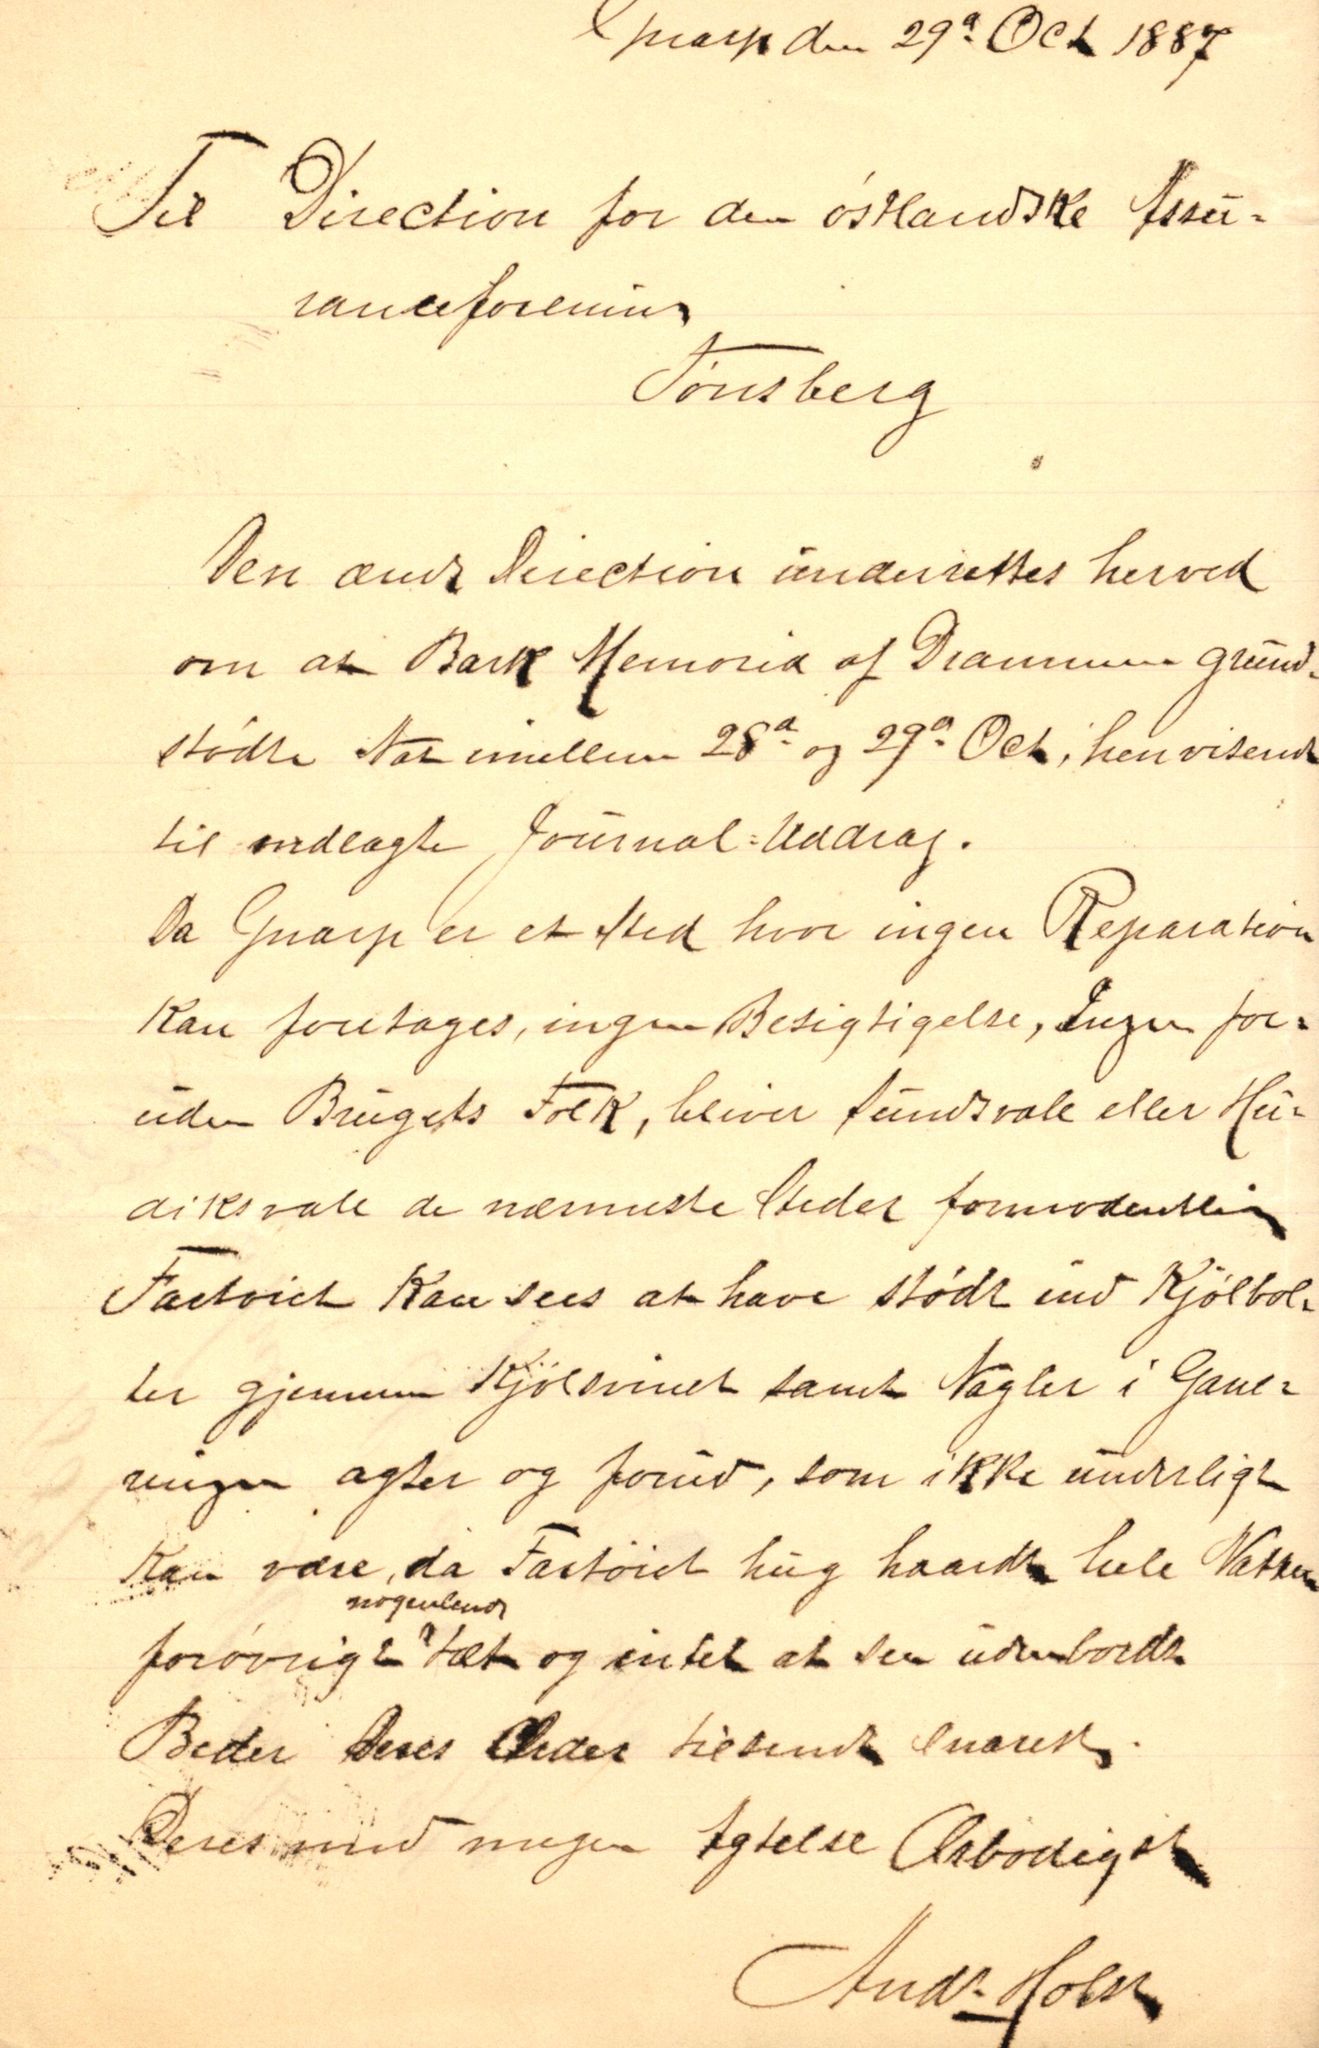 Gnarp den 29ᵈ Oct 1887
Til Direction for den östlandske Assu-
ranceforening
Tönsberg
Den ærede Direction underrettes herved
om at Bark Memoria af Drammen grund-
stødte Nat imellem 28ᵈ og 29ᵈ Oct, henvisende
til vedlagte Journal-Uddrag.
Da Gnarp er et Sted hvor ingen Reparation
kan foretages, ingen Besigtigelse, Ingen for-
uden Brugets Folk, bliver Sundsvale eller Hu-
diksvale de nærmeste Steder formodentlig
Fartöiet kan sees at have stödt ind Kjölbol-
ter gjennem Kjölsvinet samt Nagler i Garne-
ringen agter og forud, som ikke underligt
kan være, da Fartöiet hug haardt hele Natten
nogenlende
forövrigt tæt og intet at see udenbords
Beder Deres Order tilsendt snarest.
Deres med megen Agtelse Ærbødigst
Andr. Holst